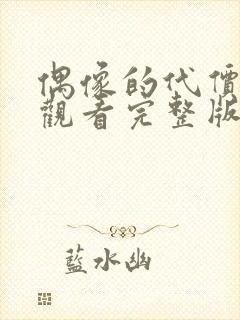 偶像的代價
觀看完整版
藍水幽